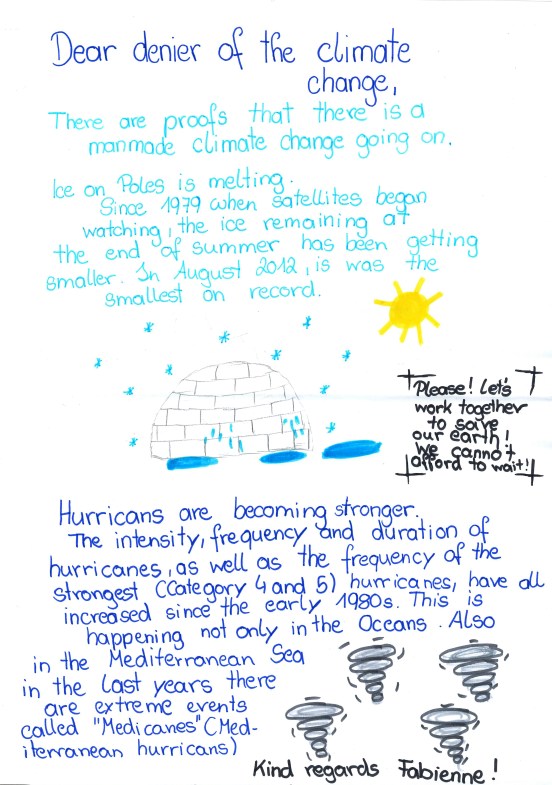 Dear denier of the climate
change,
There are proofs that there is a
manmade climate change going on.
Ice on Poles is melting.
Since 1979 when satellites began
watching, the ice remaining at
the end of summer has been getting
smaller. In August 2012, is was the
smallest on record.
Please! Let's
work together
to save
our earth!
We cannot
afford to wait!
Hurricans are becoming stronger.
The intensity, frequency and duration of
hurricanes, as well as the frequency of the
strongest (Category 4 and 5) hurricanes, have all
increased since the early 1980s. This is
happening not only in the Oceans. Also
in the Mediterranean Sea
in the last years there
are extreme events
called "Medicanes" (Med-
iterranean hurricans)
Kind regards Fabienne!